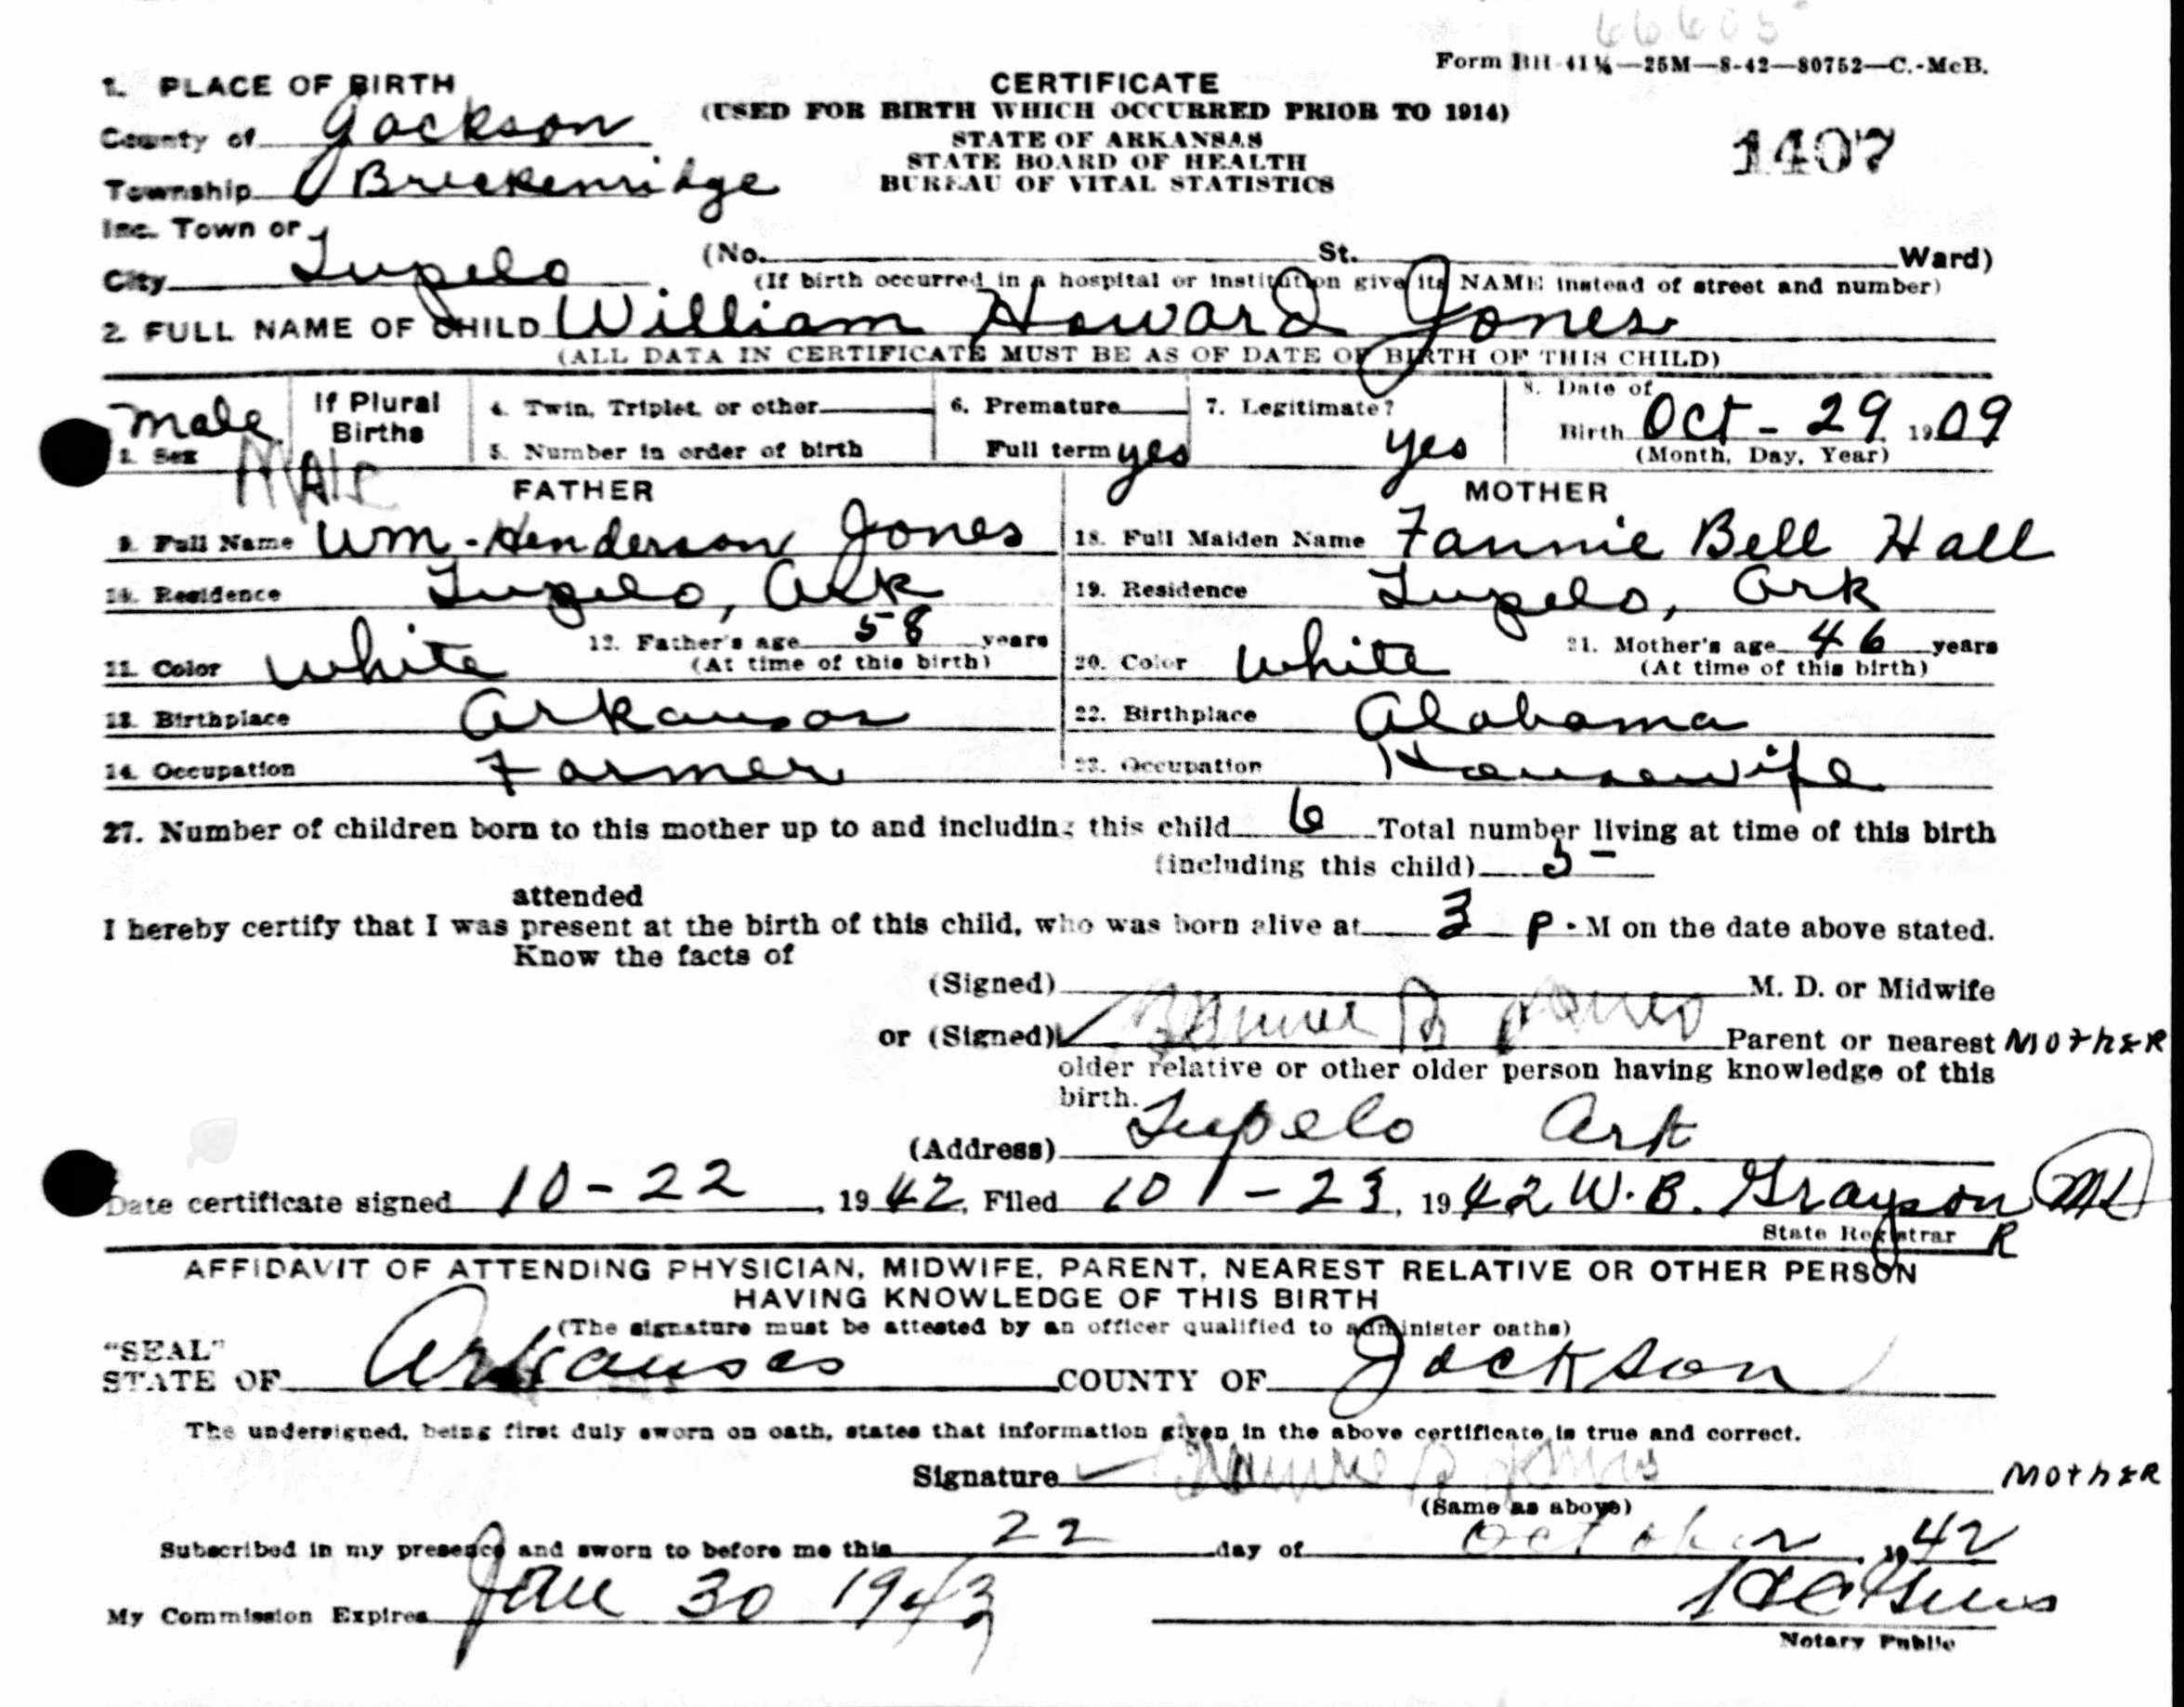 66605
Form BH-41¼—25M—8-42—80752—C.-McB.
1. PLACE OF BIRTH
CERTIFICATE
(USED FOR BIRTH WHICH OCCURRED PRIOR TO 1914)
County of Jackson
STATE OF ARKANSAS
STATE BOARD OF HEALTH
1407
Township Breckenridge
BUREAU OF VITAL STATISTICS
Inc. Town or
City Tupelo (No. St. Ward)
(If birth occurred in a hospital or institution give its NAME instead of street and number)
2. FULL NAME OF CHILD William Howard Jones
(ALL DATA IN CERTIFICATE MUST BE AS OF DATE OF BIRTH OF THIS CHILD)
male
3. Sex
MAlE
If Plural Births
4. Twin, Triplet, or other
5. Number in order of birth
6. Premature
Full term yes
7. Legitimate?
yes
8. Date of
Birth Oct - 29 1909
(Month, Day, Year)
FATHER MOTHER
9. Full Name Wm - Henderson Jones 18. Full Maiden Name Fannie Bell Hall
10. Residence Tupelo, Ark 19. Residence Tupelo, Ark
11. Color White 12. Father's age 58 years 20. Color White 21. Mother's age 46 years
(At time of this birth) (At time of this birth)
13. Birthplace Arkansas 22. Birthplace Alabama
14. Occupation Farmer 23. Occupation Housewife
27. Number of children born to this mother up to and including this child 6 Total number living at time of this birth
(including this child) 5
attended
I hereby certify that I was present at the birth of this child, who was born alive at 3 P. M on the date above stated.
Know the facts of
(Signed) M. D. or Midwife
or (Signed) Fannie B Jones Parent or nearest MOthER
older relative or other older person having knowledge of this
birth.
(Address) Tupelo Ark
Date certificate signed 10-22, 1942, Filed 10-23, 1942 W. B. Grayson
State Registrar R
AFFIDAVIT OF ATTENDING PHYSICIAN, MIDWIFE, PARENT, NEAREST RELATIVE OR OTHER PERSON
HAVING KNOWLEDGE OF THIS BIRTH
(The signature must be attested by an officer qualified to administer oaths)
"SEAL"
STATE OF Arkansas COUNTY OF Jackson
The undersigned, being first duly sworn on oath, states that information given in the above certificate is true and correct.
Signature Fannie B Jones MOthER
(Same as above)
Subscribed in my presence and sworn to before me this 22 day of October, 1942
My Commission Expires Jan 30 1943
Notary Public